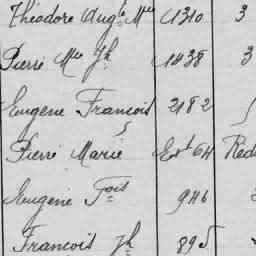 Théodore Augte Mie 1310 3
Pierre Mie Jh 1438 3
Eugène François 2182
Pierre Marie Ext 64 Red
Eugène Fois 946
François Jh 895